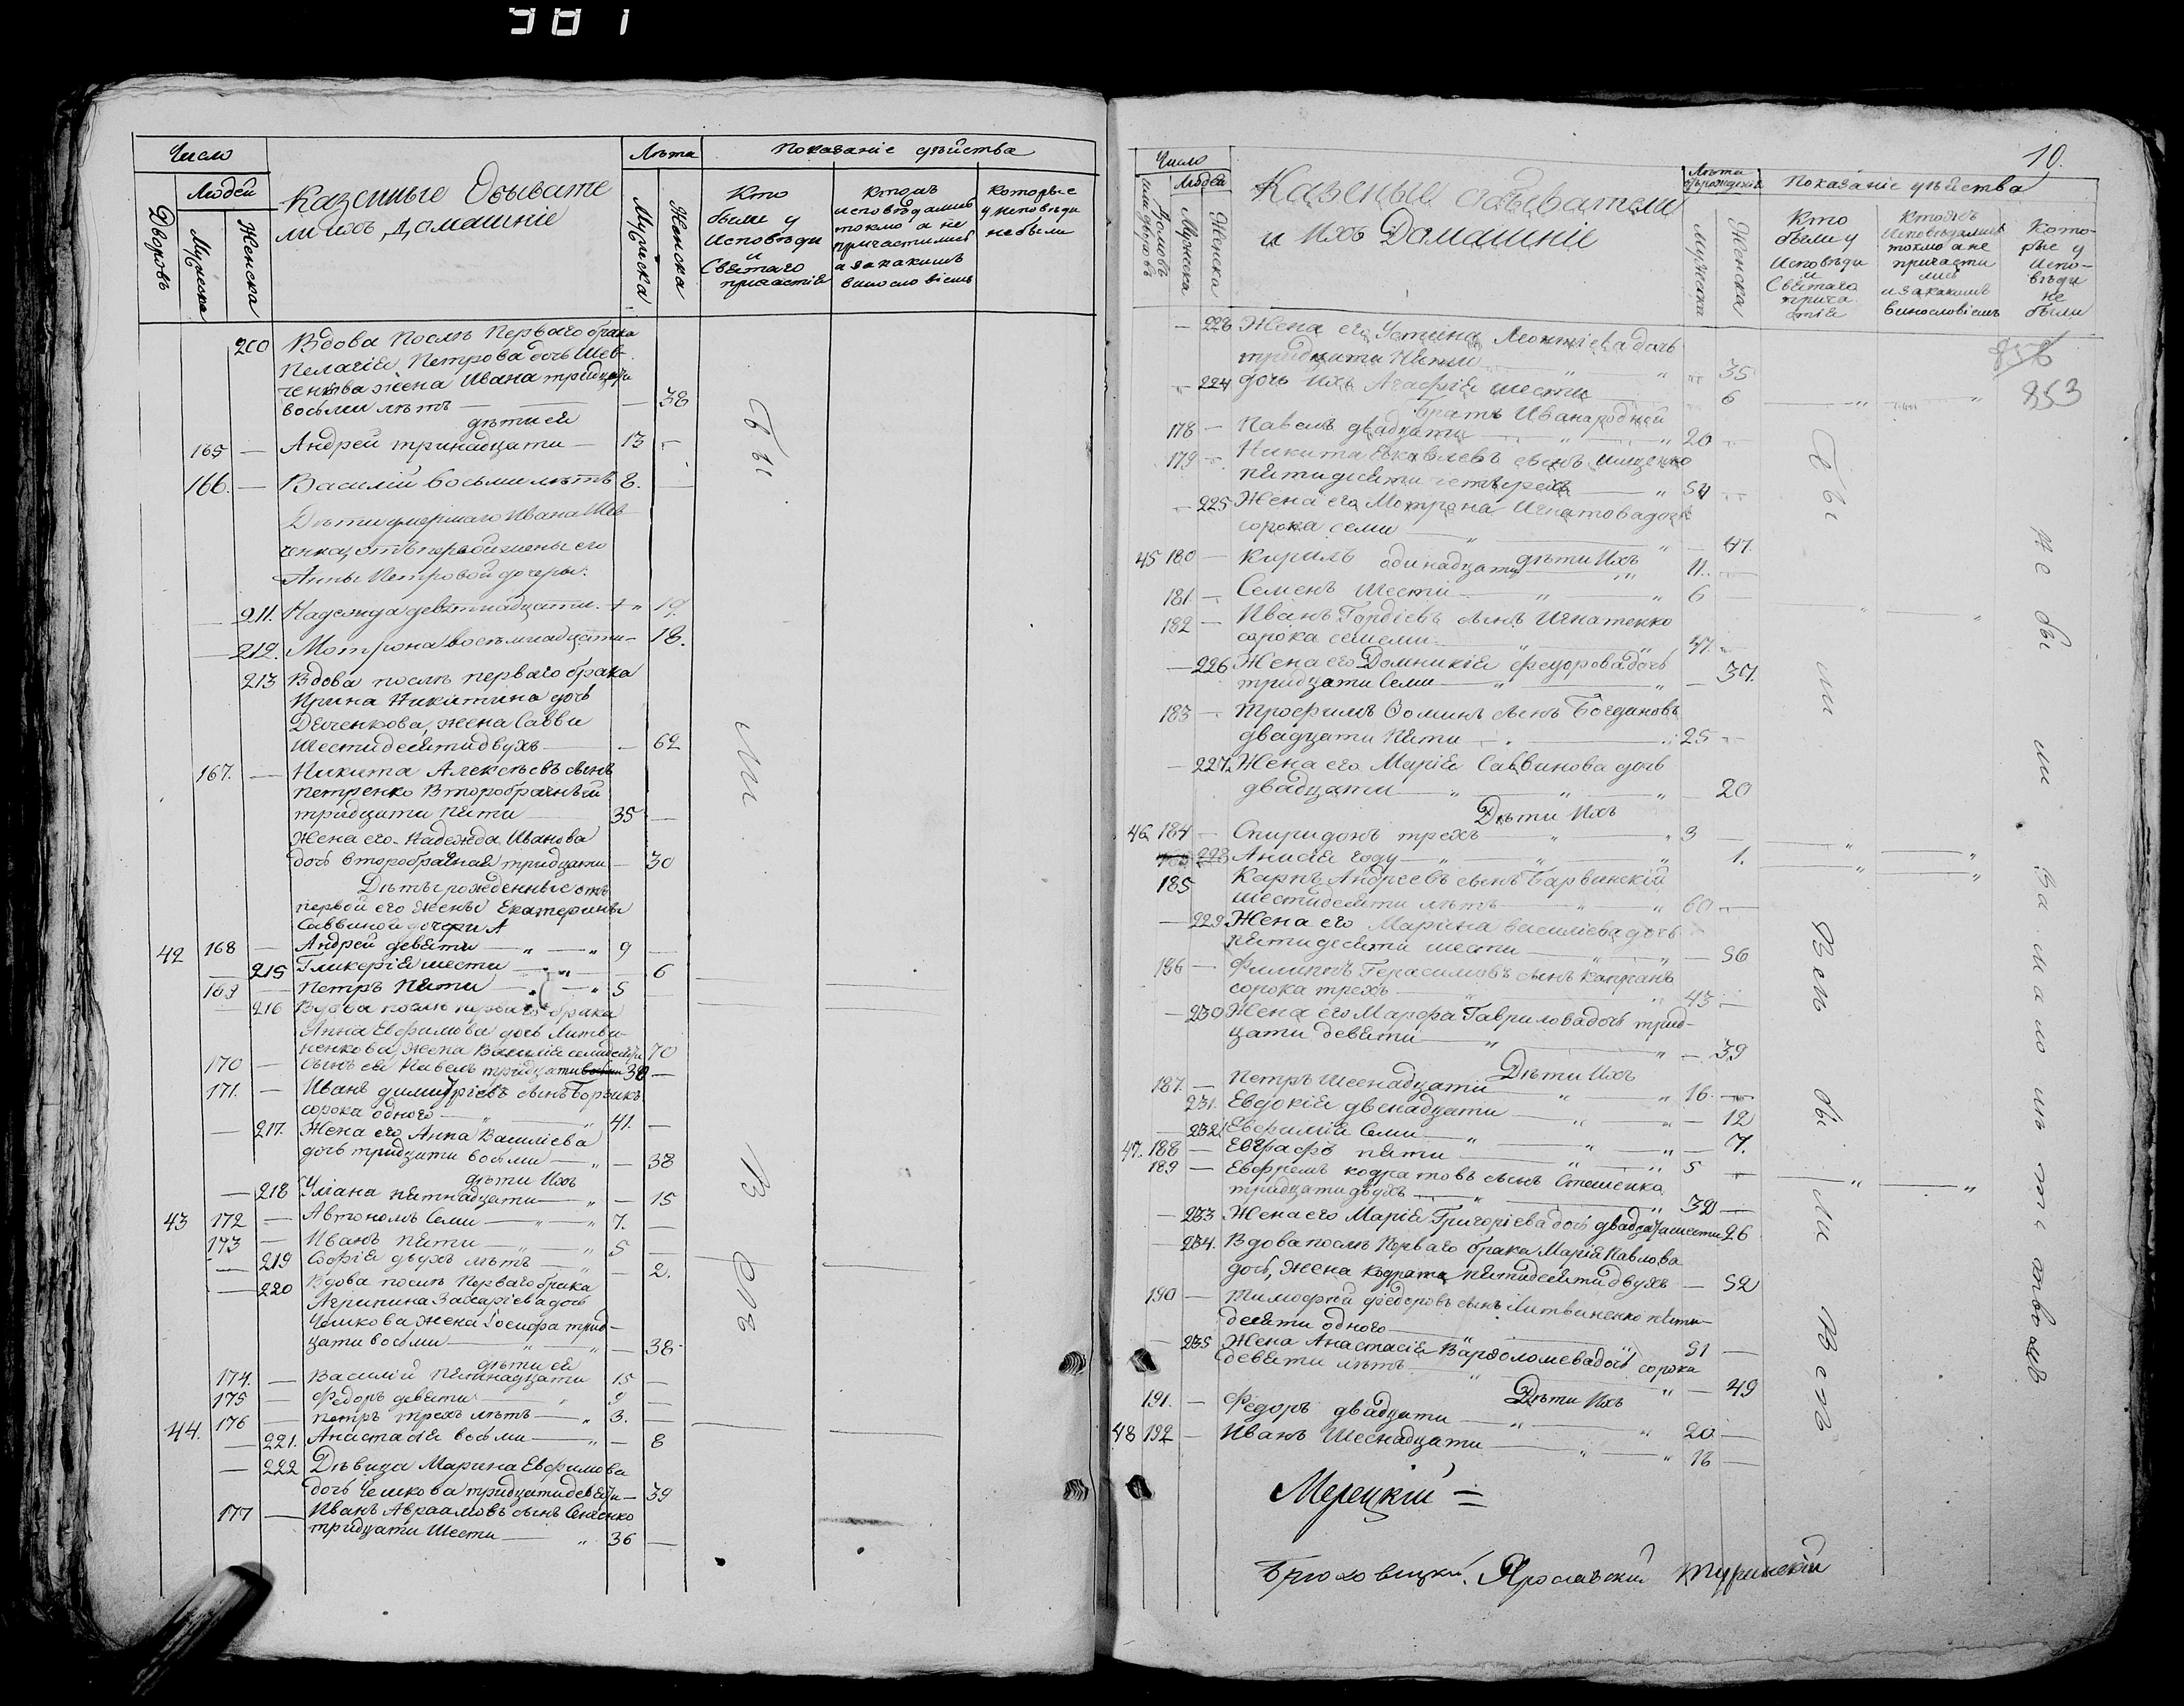 381
Число
Людей
Дворовъ
Мужеска
Женска
Казенные Обывате
ли ихъ Домашніе
Лѣта
Мужеска
Женска
Показаніе дѣйства
Кто
были у
Исповѣди
и
Святаго
причастія
Кто изъ
исповѣдались
токмо а не
причастились
а за какимъ
винословіемъ
которые
у исповѣди
не были
200 Вдова Послѣ Перваго брака
Пелагія Петрова дочь Шев-
ченкова жена Ивана тридцати
восьми лѣтъ — 38
дѣти ея
165 — Андрей тринадцати — 13 —
166. — Василій восьми лѣтъ 8. —
Дѣти умершаго Ивана Шев
ченка, отъ первой жены его
Анны Петровой дочери:
211. Надежда девятнадцати. 19.
— 212. Мотрона восемнадцати — 18.
213 Вдова послѣ перваго брака
Ирина Никитина дочь
жена Саввы
Шестидесяти двухъ — 62
167. — Никита Алексѣевъ сынъ
Петренко Второбрачный
тридцати пяти 35 —
Жена его Надежда Иванова
дочь второбрачная тридцати — 30
Дѣти рожденные отъ
первой его жены Екатерины
Саввиной дочери
42 168 — Андрей девяти — „ — „ 9 —
— 215 Гликерія шести — „ — 6
169 — Петръ Пяти — „ 5
— 216 Вдова послѣ перваго брака
Анна Евфимова дочь Литви-
ненкова, жена Василія семидесяти 70
170 — Сынъ ея Павелъ тридцати 30 —
171. — Иванъ Димитріевъ сынъ
сорока одного — „ — „ 41. —
— 217. Жена его Анна Василіева
дочь тридцати восьми — „ — 38
дѣти Ихъ
— 218 Уліана пятнадцати — „ — 15
43 172 — Автономъ Семи — „ — „ 7. —
173 — Иванъ пяти — „ — „ 5 —
— 219 Софія двухъ лѣтъ — „ — 2.
— 220 Вдова послѣ Перваго брака
Агрипина Захаріева дочь
жена Іосифа трид-
цати восьми — „ — „ — 38
дѣти ея
174. — Василій Пятнадцати 15 —
175 — Федоръ девяти — „ 9 —
44. 176 — Петръ трехъ лѣтъ — „ 3. —
— 221. Анастасія восьми — „ — 8
— 222 Дѣвица Марина Евфимова
дочь тридцати девяти — 39
177 — Иванъ Авраамовъ сынъ
тридцати Шести — „ 36 —
Бы
ли
Вс
10.
Число
Людей
или дворовъ
Домовъ
Мужеска
Женска
Казеные обыватели
и Ихъ Домашніе
Лѣта
отъ рожденія
Мужеска
Женска
Показаніе дѣйства
Кто
были у
Исповѣди
и
Святаго
прича
стія
Кто изъ
Исповѣдались
токмо а не
причасти
лись
и за какимъ
винословіемъ
Кото-
рые у
Испо-
вѣди
не
были
853
— 223 Жена его Устина Леонтіева дочь
тридцати Пяти — „ — „ 35
— 224 дочь ихъ Агафія шести 6
Братъ Ивана родной
178 — Павелъ двадцати — „ 20 —
179 — Никита Яковлевъ сынъ
пятидесяти четырехъ — „ 54 —
— 225 Жена его Мотрона Игнатова дочь
сорока семи — „ — „ — 47.
дѣти Ихъ
45 180 — Кирилъ одинадцати — „ 11. —
181 — Семенъ Шести — „ — „ 6 —
182 — Иванъ Гордіевъ сынъ Игнатенко
сорока 47. —
— 226 Жена его Домникія Федорова дочь
тридцати Семи — „ — „ — 37.
183 — Трофимъ Фоминъ сынъ Богдановъ
двадцати Пяти — „ 25 —
— 227. Жена его Марія Саввинова дочь
двадцати — „ — „ — „ — 20
Дѣти Ихъ
46 184 — Спиридонъ трехъ — „ — „ 3 —
228 Анисія году — „ — „ — „ 1.
185 Карпъ Андреевъ сынъ Барвинскій
шестидесяти лѣтъ — „ — „ 60 —
— 229 Жена его Марина Василіева дочь
пятидесяти шести — „ — 56
186 — Филиппъ Герасимовъ сынъ
сорока трехъ — „ — „ 43 —
— 230 Жена его Марфа Гаврилова дочь трид-
цати девяти — „ — „ — 39
Дѣти Ихъ
187. — Петръ Шеснадцати — „ — „ 16. —
231. Евдокія двенадцати — „ — „ — 12
— 232 Евфимія Семи — „ — „ — „ — 7.
47. 188 — Евграфъ пяти — „ — „ 5 —
189 — Евфремъ кодратовъ сынъ
тридцати двухъ — „ — „ 32 —
— 233 Жена его Марія Григоріева дочь двадцати шести 26
— 234. Вдова послѣ Перваго брака Марія Павлова
дочь, жена Кодрата пятидесяти двухъ — 52
190 — Тимофей Федоровъ сынъ Литвиненко пяти-
десяти одного — „ — „ 51 —
— 235 Жена Анастасія Варфоломеева дочь сорока
девяти лѣтъ — „ — „ — 49
Дѣти Ихъ
191. — Федоръ двадцати — „ — „ 20 —
48 192 — Иванъ Шеснадцати — „ — „ 16 —
Бы
ли
Вси
бы
ли
не бы ли
За малолѣтствомъ
Мерецкій =
Ярославскій